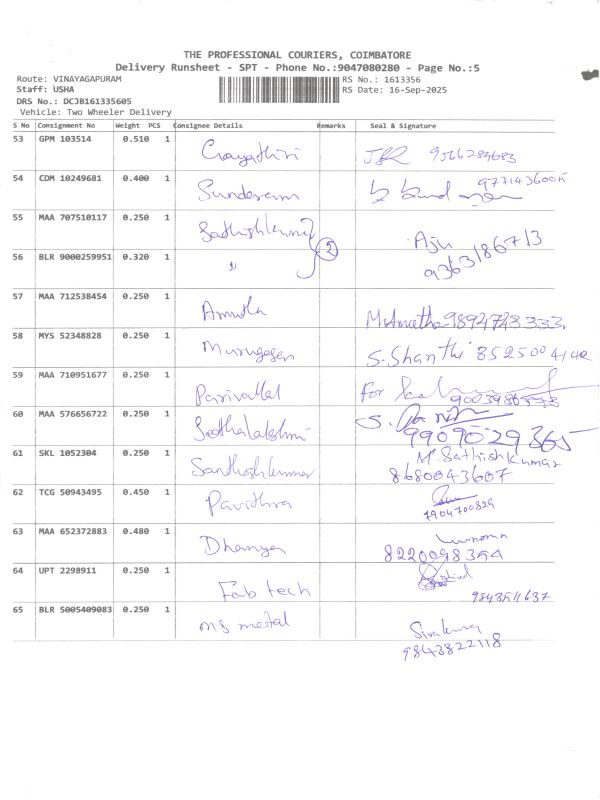 THE PROFESSIONAL COURIERS, COIMBATORE
Delivery Runsheet - SPT - Phone No.:9047080280 - Page No.:5
Route: VINAYAGAPURAM RS No.: 1613356
Staff: USHA RS Date: 16-Sep-2025
DRS No.: DCJB161335605
Vehicle: Two Wheeler Delivery
S No Consignment No Weight PCS Consignee Details Remarks Seal & Signature
53 GPM 103514 0.510 1 Gayathiri 9566289683
54 CDM 10249681 0.400 1 Sunderam
55 MAA 707510117 0.250 1 Sathishkumar Aju
56 BLR 9000259951 0.320 1 " 2 9363186713
57 MAA 712538454 0.250 1 Amutha 9894723333
58 MYS 52348828 0.250 1 Murugesan S. Shanthi
59 MAA 710951677 0.250 1 Parivallal For
60 MAA 576656722 0.250 1 Seethalakshmi S.
9909029365
61 SKL 1052304 0.250 1 Santhoshkumar M. Sathish Kumar
8680043607
62 TCG 50943495 0.450 1 Pavithra
7904700829
63 MAA 652372883 0.480 1 Dhanya
8220098354
64 UPT 2298911 0.250 1 Fab tech
65 BLR 5005409083 0.250 1 MS metal Sivakumar
9843822118